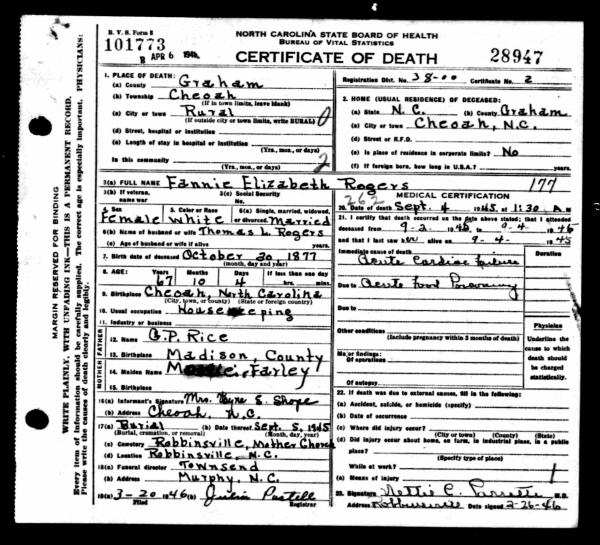 B. V. S. Form 8
101773
B APR 6 1946
NORTH CAROLINA STATE BOARD OF HEALTH
BUREAU OF VITAL STATISTICS
CERTIFICATE OF DEATH
28947
MARGIN RESERVED FOR BINDING
WRITE PLAINLY, WITH UNFADING INK—THIS IS A PERMANENT RECORD.
Every item of information should be carefully supplied. The correct age is especially important. PHYSICIANS:
Please write the causes of death clearly and legibly.
Registration Dist. No. 38-00 Certificate No. 2
1. PLACE OF DEATH:
(a) County Graham
(b) Township Cheoah
(If in town limits, leave blank)
(c) City or town Rural 0
(If outside city or town limits, write RURAL)
(d) Street, hospital or institution
(e) Length of stay in hospital or institution
(Yrs., mos., or days)
In this community 2
(Yrs., mos., or days)
2. HOME (USUAL RESIDENCE) OF DECEASED:
(a) State N.C. (b) County Graham
(c) City or town Cheoah, N.C.
(d) Street or R.F.D.
(e) Is place of residence in corporate limits? No
(f) If foreign born, how long in U.S.A.? Yrs.
3(a) FULL NAME Fannie Elizabeth Rogers 177
3(b) If veteran, name war
3(c) Social Security No.
4. Sex Female
5. Color or Race White
6(a) Single, married, widowed, or divorced Married
6(b) Name of husband or wife Thomas L. Rogers
(c) Age of husband or wife if alive
7. Birth date of deceased October 30, 1877
(month, day and year)
8. AGE: Years 67 Months 10 Days 4 If less than one day hrs. min.
9. Birthplace Cheoah, North Carolina
(City, town, or county) (State or foreign country)
10. Usual occupation Housekeeping
11. Industry or business
FATHER
12. Name G.P. Rice
13. Birthplace Madison, County
MOTHER
14. Maiden Name Farley
15. Birthplace
16(a) Informant's Signature Mrs. S. Shope
(b) Address Cheoah, N.C.
17(a) Burial (b) Date thereof Sept. 5, 1945
(Burial, cremation, or removal) (Month, day, year)
(c) Cemetery Robbinsville, Mother Church
(d) Location Robbinsville, N.C.
18(a) Funeral director Townsend
(b) Address Murphy, N.C.
19(a) 3-20 1946 (b) Julia Postell
Filed Registrar
262 MEDICAL CERTIFICATION
20. Date of death Sept. 4 1945 at 1:30 A M
21. I certify that death occurred on the date above stated; that I attended
deceased from 9-2 1945 to 9-4 1945
and that I last saw her alive on 9-4 1945
Immediate cause of death Duration
Acute Cardiac Failure
Due to Acute Food Poisoning
Due to
Other conditions
(Include pregnancy within 3 months of death)
Major findings:
Of operations
Of autopsy
Physician
Underline the cause to which death should be charged statistically.
22. If death was due to external causes, fill in the following:
(a) Accident, suicide, or homicide (specify)
(b) Date of occurrence
(c) Where did injury occur?
(City or town) (County) (State)
(d) Did injury occur about home, on farm, in industrial place, in a public
place?
(Specify type of place)
While at work?
(e) Means of injury 1
23. Signature Nettie C. Parrette M.D.
Robbinsville Date signed 2-26-46